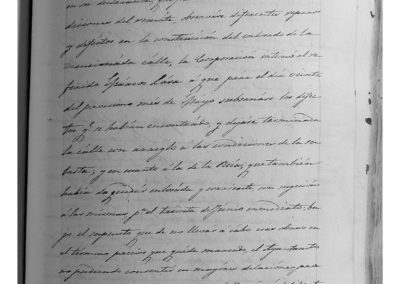 en su declaración, que
diciones del remate, observóse diferentes reparos
y defectos en la construcción del entresuelo de la
mencionada calle, la Corporación intimó al re
ferido Lara a que para el día veinte
del próximo mes de Mayo subsanase los defec
tos q.e se habían encontrado, y dejase terminada
la calle con arreglo a las condiciones de la su
basta; y en cuanto a la de la que también
había de quedar y corriente, con sugeción
a las mismas p.a el treinta de Junio inmediato; ba
jo el supuesto que de no llevar a cabo esas obras en
el término preciso que queda marcado, el Ayuntamiento
no pudiendo consentir en mayores dilaciones, para